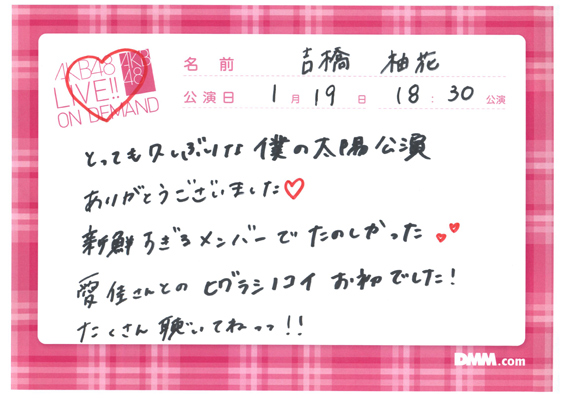 AKB48
LIVE!!
ON DEMAND
AKB
48
名前 吉橋 柚花
公演日 1月19日 18:30公演
とっても久しぶりな僕の太陽公演
ありがとうございました♡
新鮮すぎるメンバーでたのしかった
愛佳さんとのヒグラシノコイお初でした!
たくさん聴いてねっっ!!
DMM.com